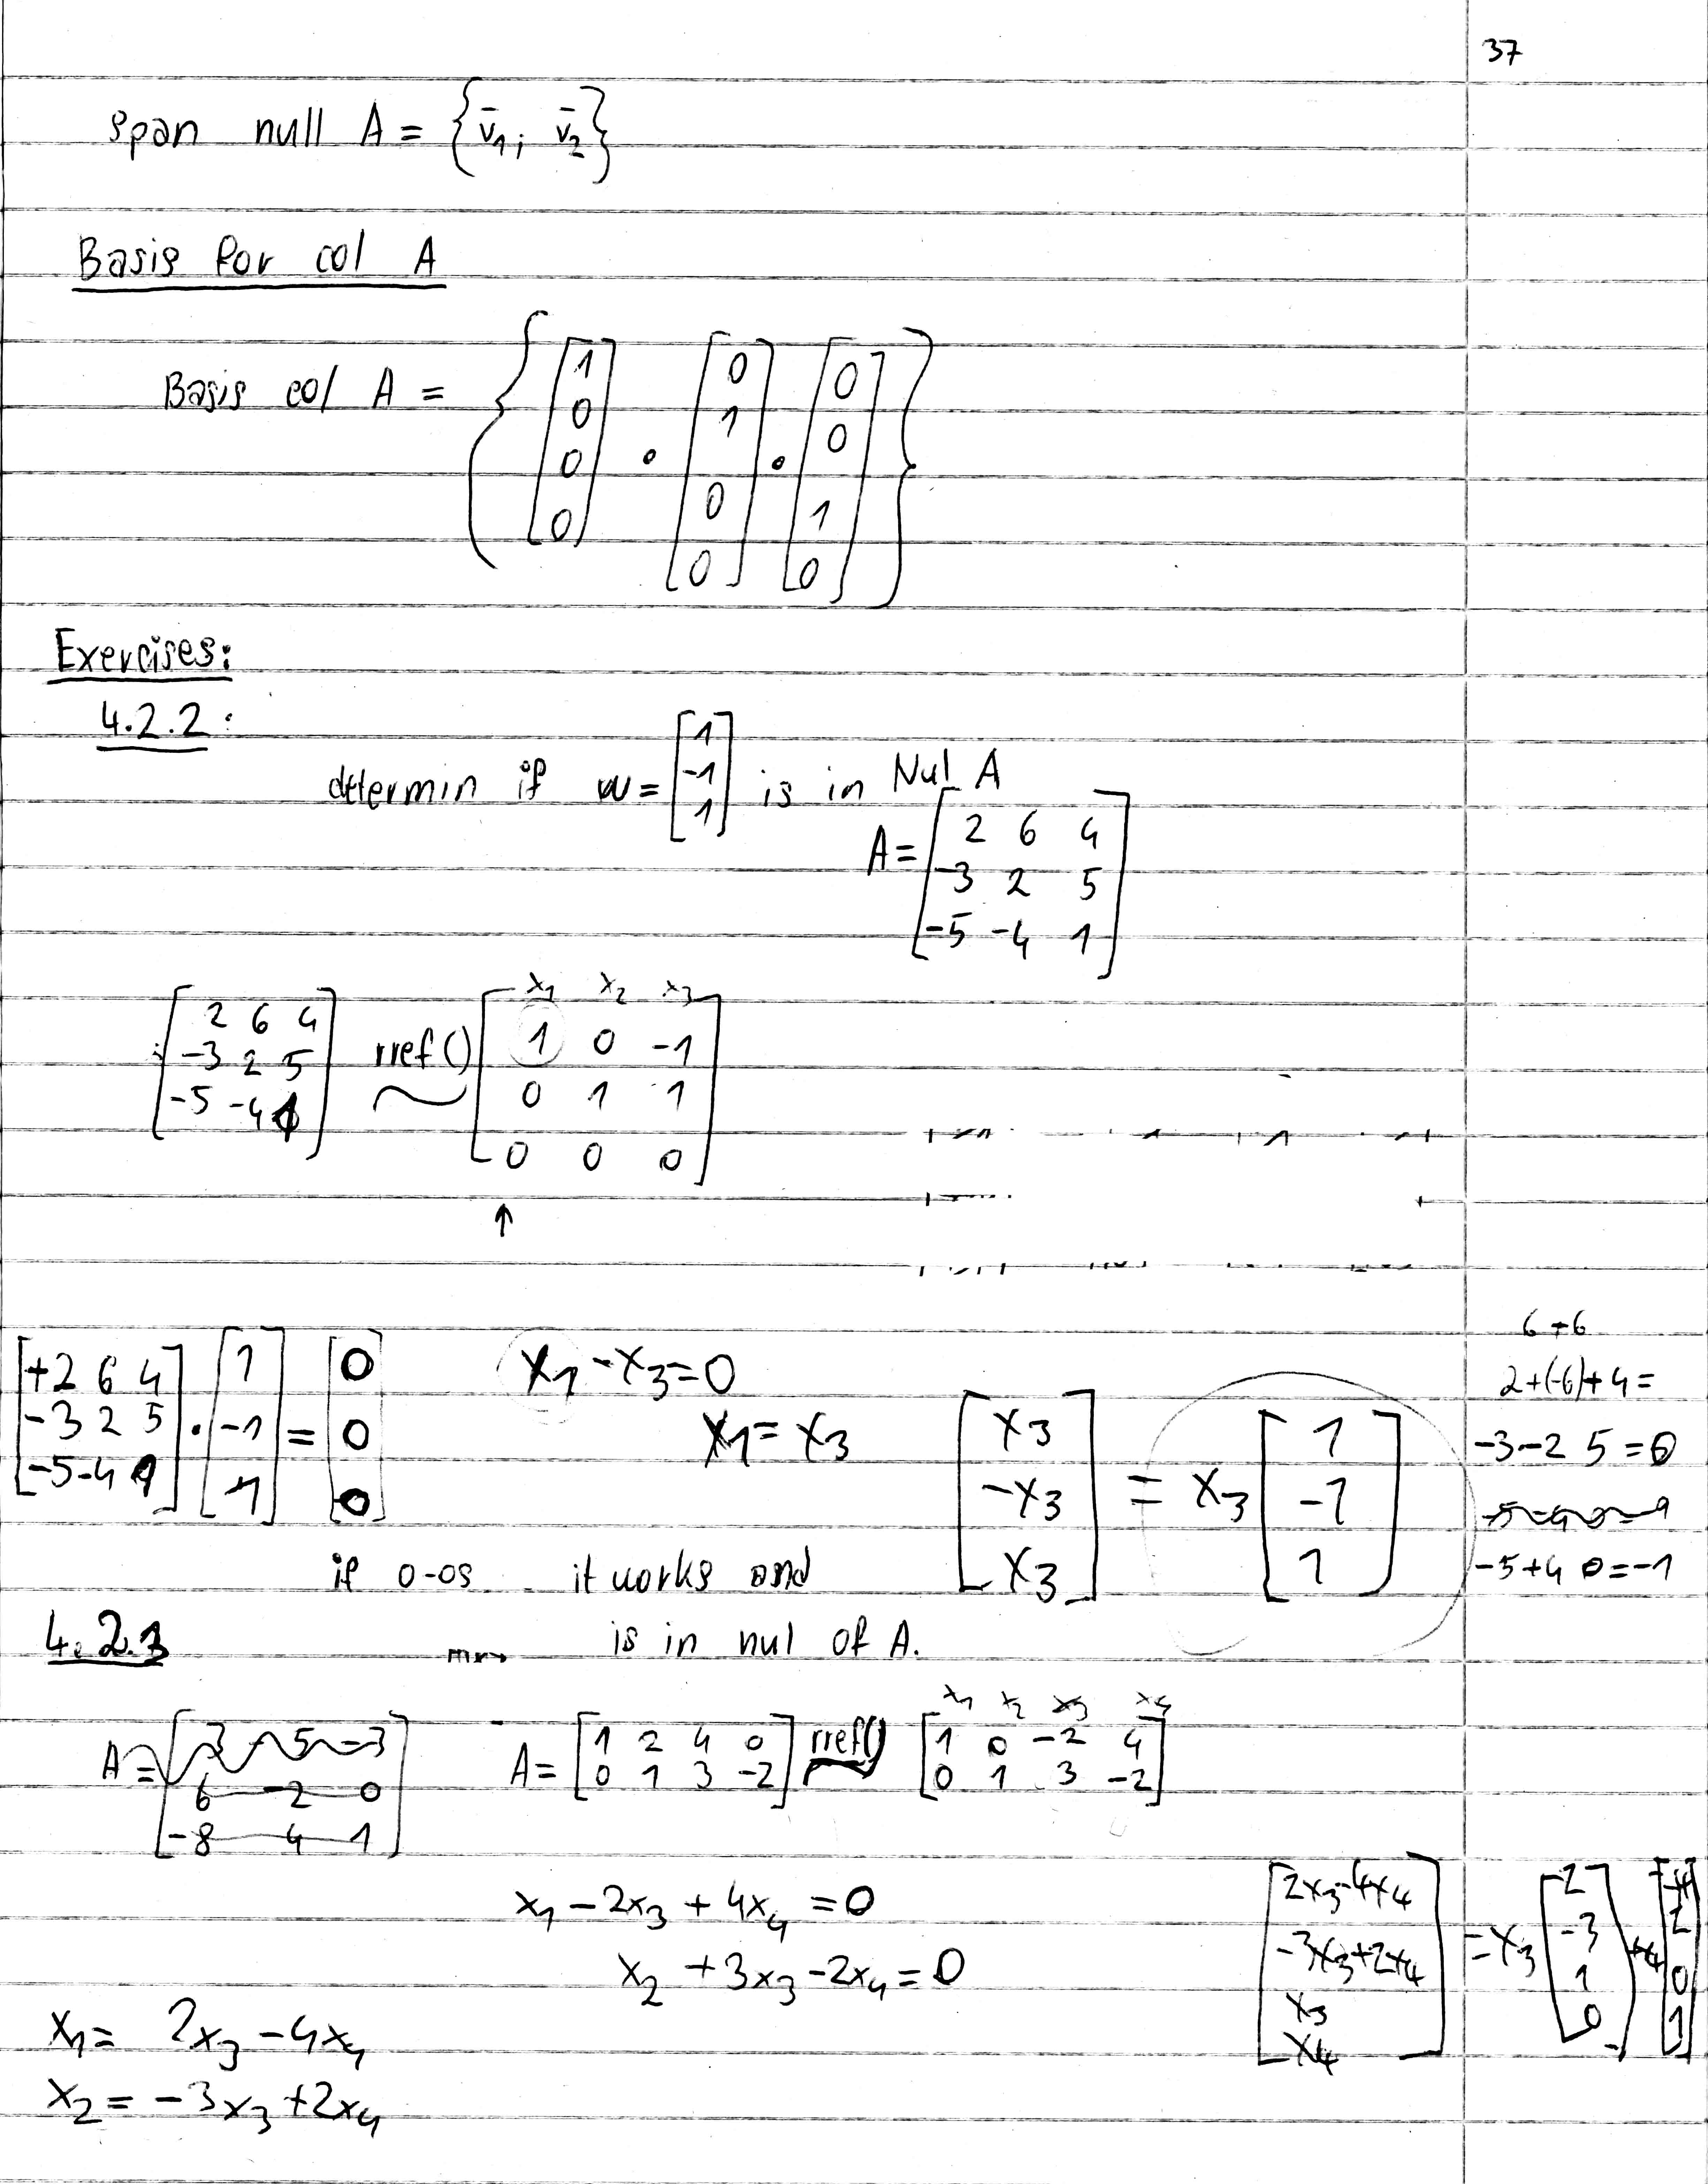 37
span null A = { v̄₁; v̄₂ }
Basis for col A
Basis col A = { [1 0 0 0] . [0 1 0 0] . [0 0 1 0] }
Exercises:
4.2.2:
determin if w = [1 -1 1] is in Nul A
A = [2 6 4
-3 2 5
-5 -4 1]
x₁ x₂ x₃
[2 6 4 [1 0 -1
-3 2 5 rref() 0 1 1
-5 -4 1] ~ 0 0 0]
↑
[+2 6 4 [1 [0
-3 2 5 . -1 = 0
-5 -4 1] 1] 0]
x₁ - x₃ = 0
x₁ = x₃
[x₃ [1
-x₃ = x₃ -1
x₃] 1]
6+6
2+(-6)+4=
-3-2 5=0
-5+4 0=-1
if 0-os it works and
is in nul of A.
4.2.3
A = [3 -5 -3
6 -2 0
-8 4 1]
x₁ x₂ x₃ x₄
A = [1 2 4 0 rref() [1 0 -2 4
0 1 3 -2] 0 1 3 -2]
x₁ - 2x₃ + 4x₄ = 0
x₂ + 3x₃ - 2x₄ = 0
x₁ = 2x₃ - 4x₄
x₂ = -3x₃ + 2x₄
[2x₃-4x₄ [2 [-4
-3x₃+2x₄ = x₃ -3 +x₄ 2
x₃ 1 0
x₄] 0] 1]